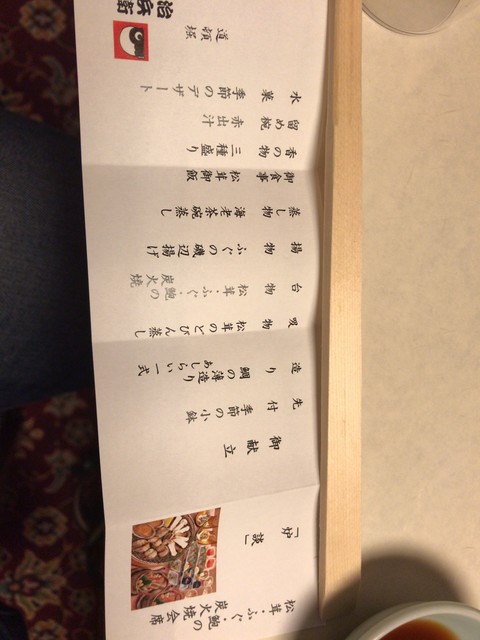 松茸・ふぐ・鮑の
炭火焼会席
「炉談」
御献立
先付 季節の小鉢
造り 鯛の薄造り
あしらい一式
吸物 松茸のどびん蒸し
台物 松茸・ふぐ・鮑の
炭火焼
揚物 ふぐの磯辺揚げ
蒸し物 海老茶碗蒸し
御食事 松茸御飯
香の物 三種盛り
留め椀 赤出汁
水菓 季節のデザート
道頓堀
治兵衛